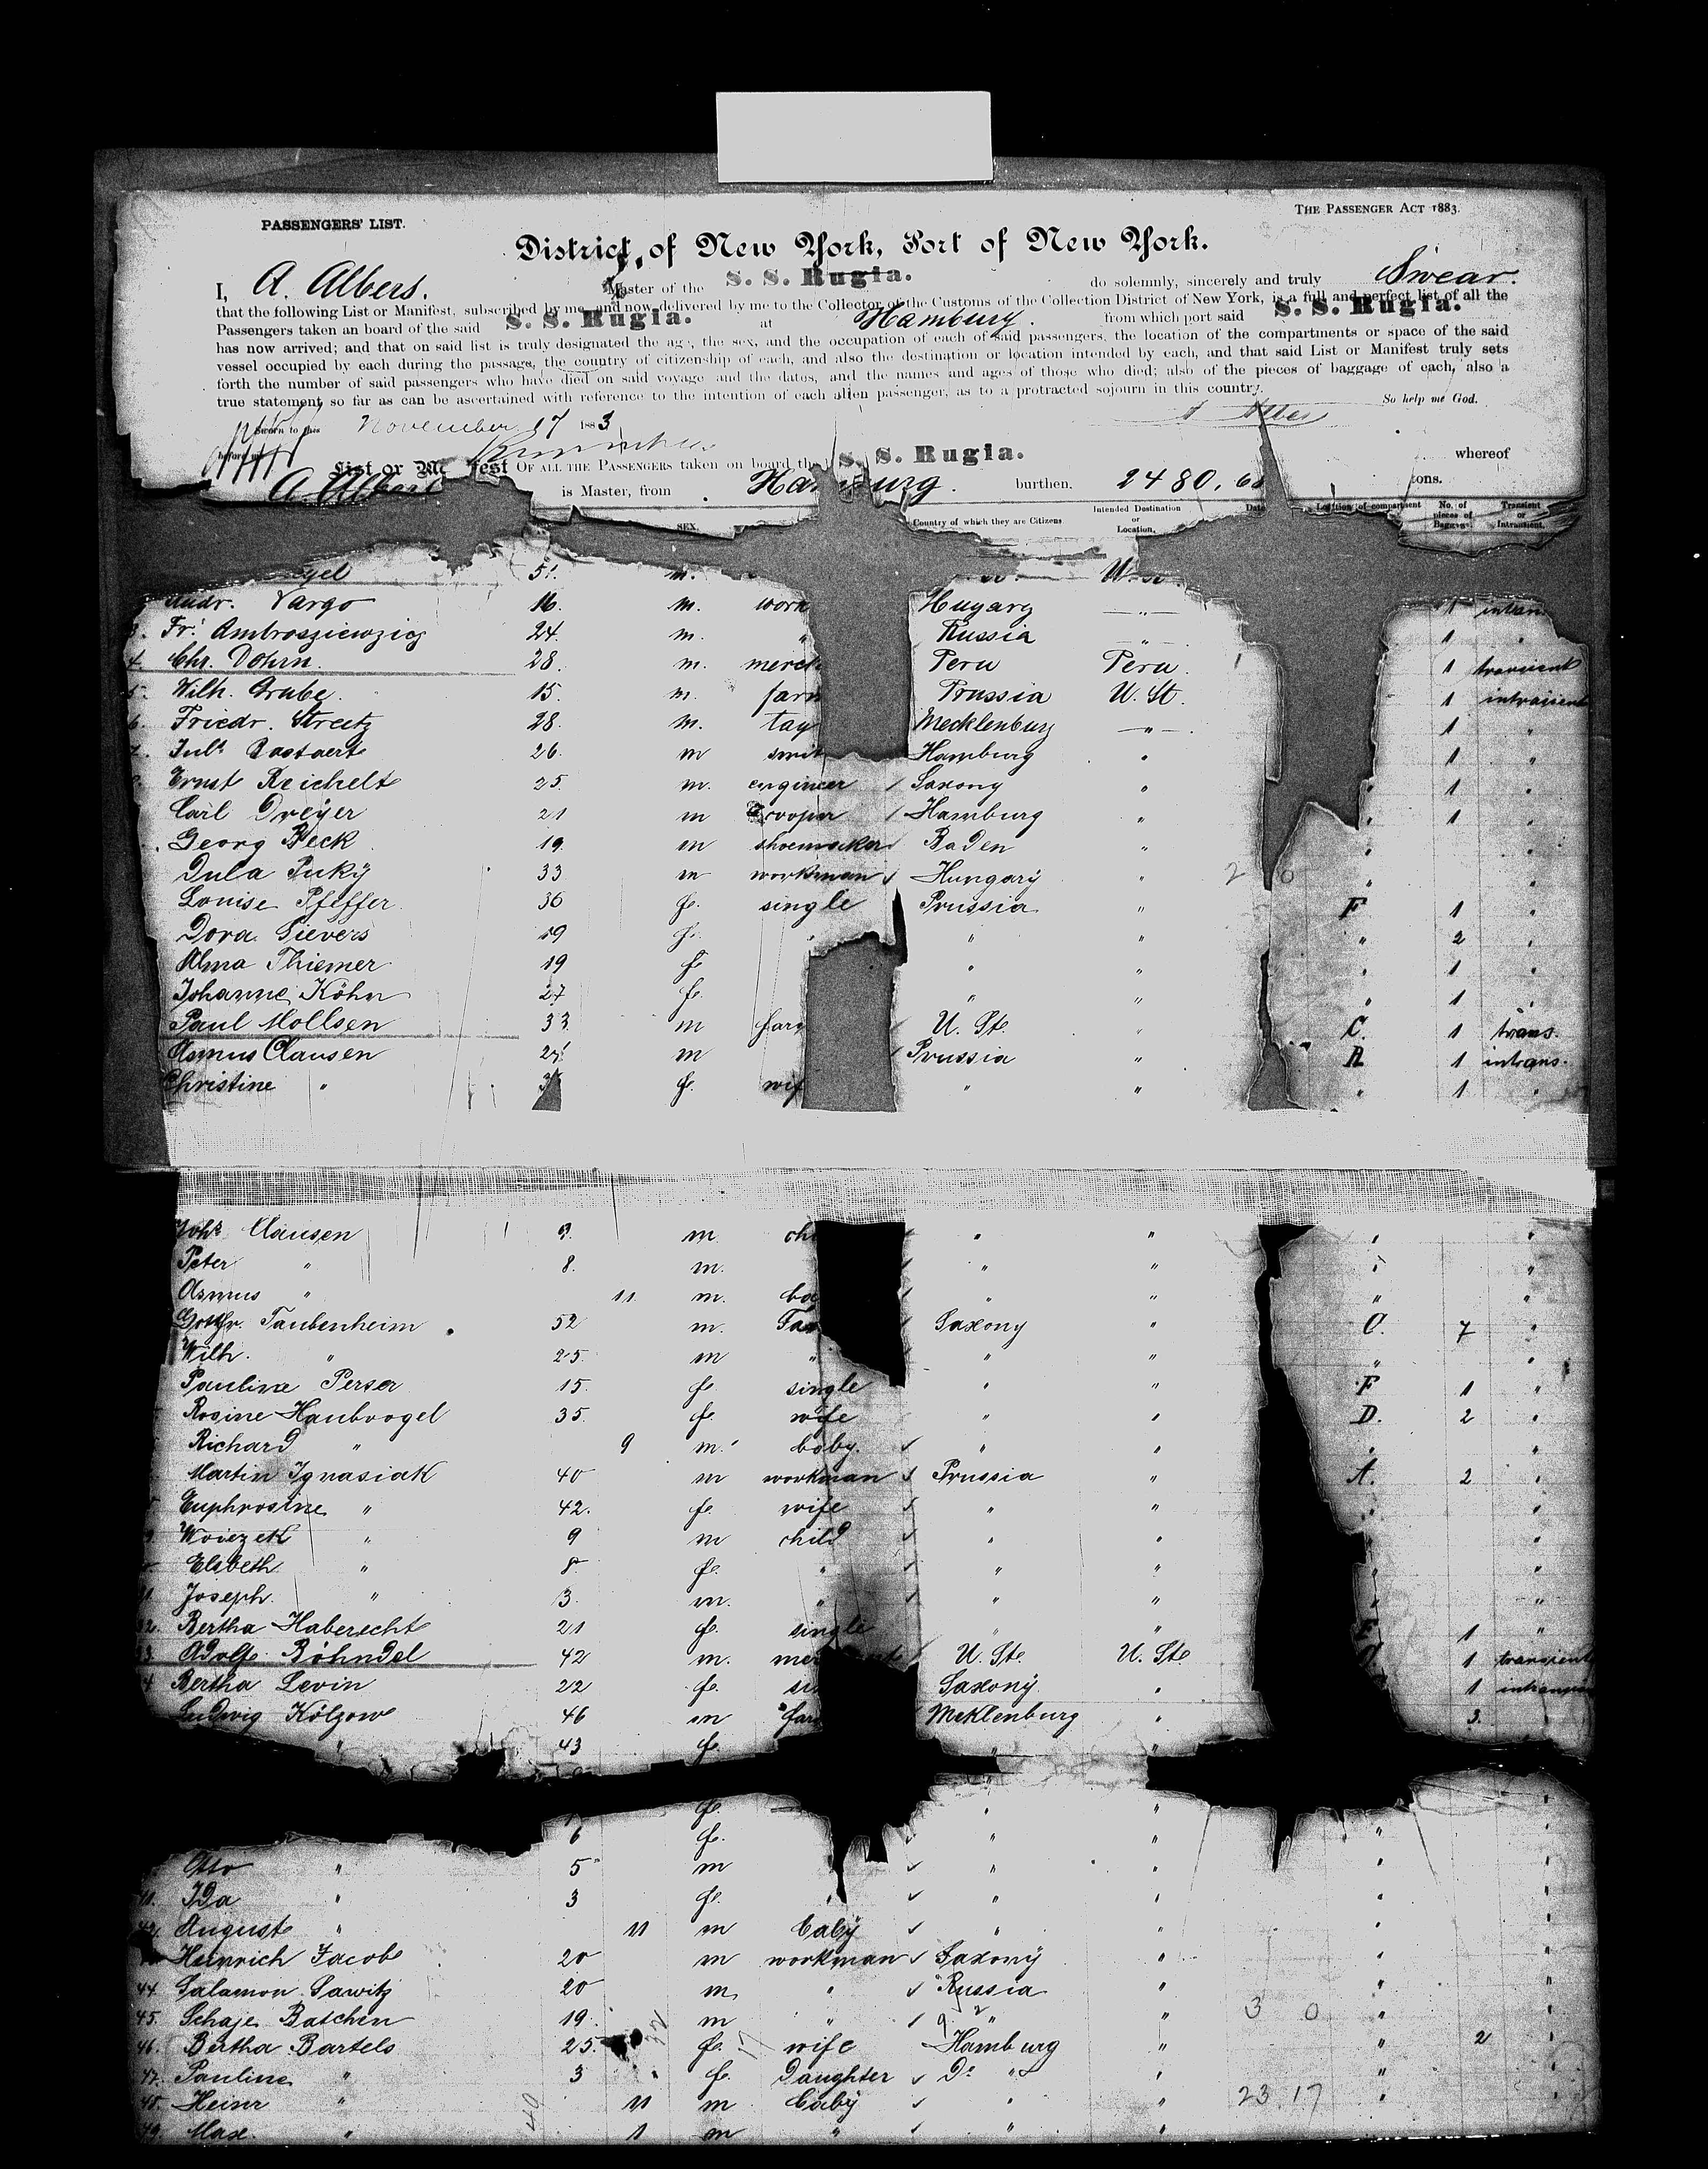 PASSENGERS' LIST.
THE PASSENGER ACT 1883.
District of New York, Port of New York.
I, A. Albers. Master of the S. S. Rugia. do solemnly, sincerely and truly Swear.
that the following List or Manifest, subscribed by me, and now delivered by me to the Collector of the Customs of the Collection District of New York, is a full and perfect list of all the
Passengers taken an board of the said S. S. Rugia. at Hamburg. from which port said S. S. Rugia.
has now arrived; and that on said list is truly designated the age, the sex, and the occupation of each of said passengers, the location of the compartments or space of the said
vessel occupied by each during the passage, the country of citizenship of each, and also the destination or location intended by each, and that said List or Manifest truly sets
forth the number of said passengers who have died on said voyage and the dates, and the names and ages of those who died; also of the pieces of baggage of each, also a
true statement so far as can be ascertained with reference to the intention of each alien passenger, as to a protracted sojourn in this country.
So help me God.
Sworn to this November 17 1883
before me
List or Manifest OF ALL THE PASSENGERS taken on board the S. S. Rugia. whereof
A. Albers is Master, from Hamburg. burthen, 2480,6 tons.
SEX. Country of which they are Citizens Intended Destination or Location, Date Location of compartment No. of pieces of Baggage. Transient or Intransient.
51. m. U. St.
Andr. Vargo 16. m. work Hugary " 1 intran
3. Fr. Ambrosziewzicz 24. m. " Russia " 1 "
4. Chr. Dohrn. 28. m. merch Peru Peru. 1 transient
5. Wilh. Grube. 15. m. farm Prussia U. St. 1 intransient
6. Friedr. Streetz 28. m. tay Mecklenburg " 1 "
7. Juls Bastaert 26. m smit Hamburg " 1 "
Ernst Reichelt 25. m. engineer Saxony " " 1 "
Carl Dreyer 21 m Hamburg " " 1 "
Georg Beck 19. m shoemaker Baden " " "
Dula Puky 33 m workman Hungary " " "
Louise Pfeffer 36 fe. single Prussia " F 1 "
Dora Sievers 19 fe. " " " 2 "
Alma Thiemer 19 fe " " " 1 "
Johanne Köhn 27 fe. " " " 1 "
Paul Mollsen 33. m farm U. Ste. " C. 1 trans.
Asmus Clausen 27 m Prussia " A 1 intrans.
Christine " 3 fe. wif " " " 1 "
Johs Clausen 9. m chi " " " "
Peter " 8. m. " " " "
Asmus " 11 m. ba " " " "
Gottfr. Taubenheim 52 m. Far Saxony " C. 7 "
Wilh. " 25. m " " " " "
Pauline Perser 15. fe. single " " F 1 "
Rosine Haubvogel 35. fe. wife " " D. 2 "
Richard " 9 m. baby. " " " "
Martin Ignasiak 40 m workman Prussia " A. 2 "
Euphrosine " 42. fe. wife " " " "
Woiezek " 9 m child " " " "
Elsbeth " 8. fe. " " " " "
31. Joseph. " 3. m. " " " " "
32. Bertha Haberecht 21 fe. single " " 1 "
33. Adolf Böhndel 42 m. mer U. Ste. U. Ste. 1 transient
34 Bertha Levin 22 fe. sin Saxony. " 1 intransien
Ludwig Kölzow 46 m farm Meklenburg " 3. "
" 43 fe. " "
fe. " " "
6 fe. " " "
Otto " 5 m " " " "
41. Ida " 3 fe. " " " " "
42. August " 11 m baby " " " "
Heinrich Jacob 20 m workman Saxony " " "
44. Salamon Sawitz 20 m. " Russia " " "
45. Schaje Batchin 19. m " " " 3 0 " "
46. Bertha Bartels 25. fe. wife Hamburg " " 2 "
47. Pauline " 3 fe. Daughter Do " " " "
48. Heinr " 11 m baby " " 23 17 " "
49. Max. " 1 m " " " "